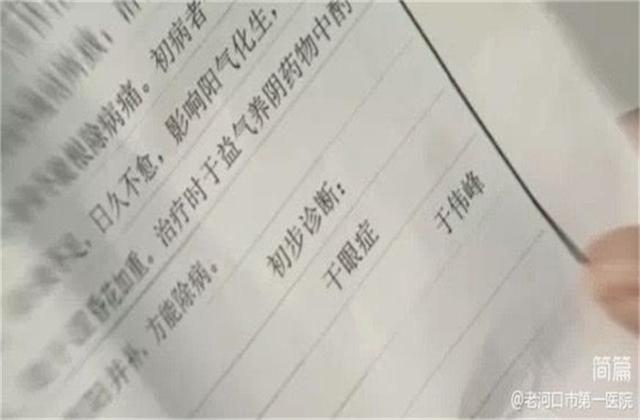 根除病痛。初病者
日久不愈，影响阳气化生，
昏花加重。治疗时于益气养阴药物中酌
并补，方能除病。
初步诊断：
干眼症
于伟峰
简篇
@老河口市第一医院